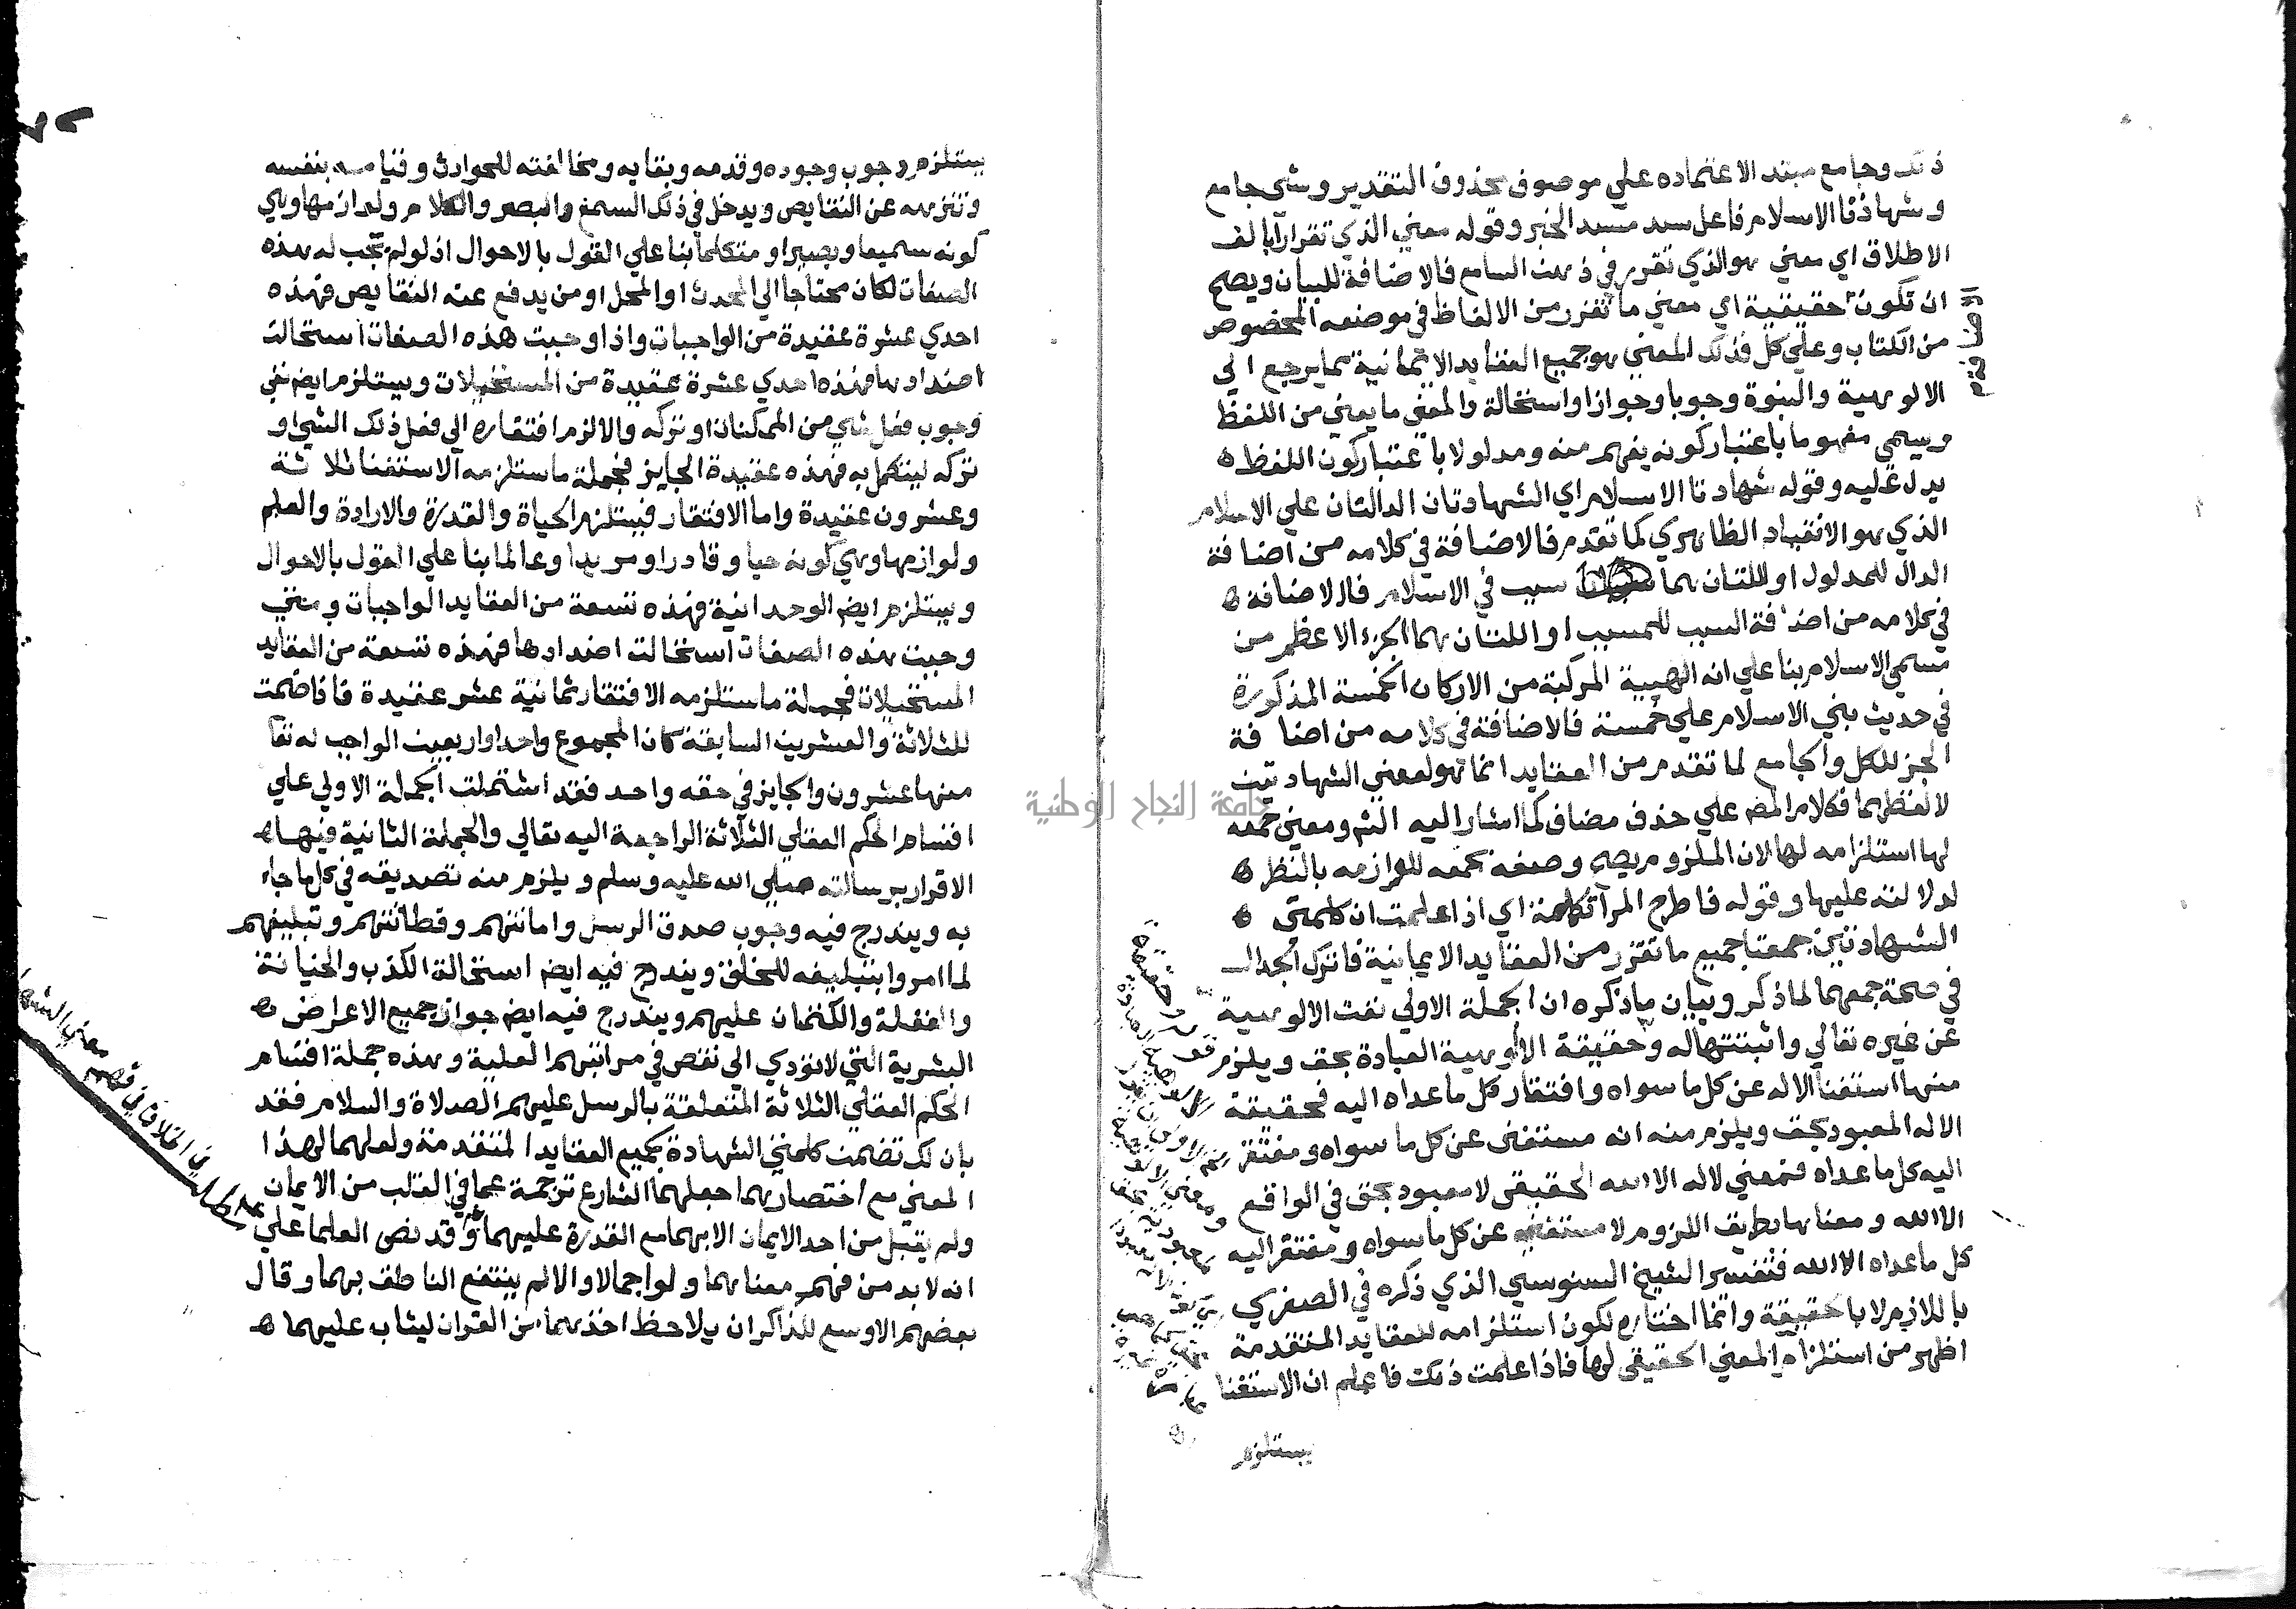 ذلك وجامع مبتدا لاعتماده علي موصوف محذوف التقدير وشي جامع
وشهادتا الاسلام فاعل سد مسد الخبر وقوله معني الذي تقررا بالف
الاطلاق اي معني هو الذي تقرر في ذهن السامع فالاضافة للبيان ويصح
ان تكون حقيقية اي معني ما تقرر من الالفاظ في موضعه المخصوص
من الكتاب وعلي كل فذلك المعني هو جميع العقايد الايمانية مما يرجع الي
الالوهية والنبوة وجوبا وجوازا واستحالة والمعني ما يعني من اللفظ
ويسمي مفهوما باعتبار كونه يفهم منه ومدلولا باعتبار كون اللفظ ه
يدل عليه وقوله شهادتا الاسلام اي الشهادتان الدالتان علي الاسلام
الذي هو الانقياد الظاهري كما تقدم فالاضافة في كلامه من اضافة
الدال للمدلول او اللتان هما سبب في الاسلام فالاضافة ه
في كلامه من اضافة السبب للمسبب او اللتان هما الجزء الاعظم من
مسمي الاسلام بنا علي انه الهيية المركبة من الاركان الخمسة المذكورة
في حديث بني الاسلام علي خمسة فالاضافة في كلامه من اضافة
الجز للكل والجامع لما تقدم من العقايد انما هو لمعني الشهادتين
لا لفظهما فكلام المص علي حذف مضاف كما اشار اليه الشم ومعني جمعه
لها استلزامه لها لان الملزوم يصح وصفه بجمعه للوازمه بالنظر ه
لدلالته عليها وقوله فاطرح المرا تكلمة اي اذا علمت ان كلمتي ه
الشهادتين جمعتا جميع ما تقرر من العقايد الايمانية فاترك الجدال
في صحة جمعهما لما ذكر وبيان ما ذكره ان الجملة الاولي نفت الالوهية
عن غيره تعالي واثبتتها له وحقيقة الالوهية العبادة بحق ويلزم
منها استغنا الاله عن كل ما سواه وافتقار كل ما عداه اليه فحقيقة
الاله المعبود بحق ويلزم منه انه مستغني عن كل ما سواه ومفتقر
اليه كل ما عداه فمعني لا اله الا الله الحقيقي لا معبود بحق في الواقع
الا الله ومعناها بطريق اللزوم لا مستغني عن كل ما سواه ومفتقر اليه
كل ما عداه الا الله فتفسير الشيخ السنوسي الذي ذكره في الصغري
باللازم لا بالحقيقة وانما اختاره لكون استلزامه للعقايد المتقدمة
اظهر من استلزام المعني الحقيقي لها فاذا علمت ذلك فاعلم ان الاستغنا
يستلزم
يستلزم وجوب وجوده وقدمه وبقايه ومخالفته للحوادث وقيامه بنفسه
وتنزهه عن النقايص ويدخل في ذلك السمع والبصر والكلام ولوازمها وهي
كونه سميعا وبصيرا ومتكلما بنا علي القول بالاحوال اذ لو لم تجب له هذه
الصفات لكان محتاجا الي المحدث او المحل او من يدفع عنه النقايص فهذه
احدي عشرة عقيدة من الواجبات واذا وجبت هذه الصفات استحالت
اضدادها فهذه احدي عشرة عقيدة من المستحيلات ويستلزم ايضا نفي
وجوب فعل شي من الممكنات او تركه والا لزم افتقاره الي فعل ذلك الشي او
تركه ليتكمل به فهذه عقيدة الجايز فجملة ما استلزمه الاستغنا ثلاثة
وعشرون عقيدة واما الافتقار فيستلزم الحياة والقدرة والارادة والعلم
ولوازمها وهي كونه حيا وقادرا ومريدا وعالما بنا علي القول بالاحوال
ويستلزم ايضا الوحدانية فهذه تسعة من العقايد الواجبات ومتي
وجبت هذه الصفات استحالت اضدادها فهذه تسعة من العقايد
المستحيلات فجملة ما استلزمه الافتقار ثمانية عشر عقيدة فاذا ضمت
للثلاثة والعشرين السابقة كان المجموع واحدا واربعين الواجب له تعا
منها عشرون والجايز في حقه واحد فقد اشتملت الجملة الاولي علي
اقسام الحكم العقلي الثلاثة الراجعة اليه تعالي والجملة الثانية فيها ه
الاقرار برسالته صلي الله عليه وسلم ويلزم منه تصديقه في كل ما جاء
به ويندرج فيه وجوب صدق الرسل وامانتهم وفطانتهم وتبليغهم
لما امروا بتبليغه للخلق ويندرج فيه ايضا استحالة الكذب والخيانة
والغفلة والكتمان عليهم ويندرج فيه ايضا جواز جميع الاعراض ه
البشرية التي لا تؤدي الي نقص في مراتبهم العلية وهذه جملة اقسام
الحكم العقلي الثلاثة المتعلقة بالرسل عليهم الصلاة والسلام فقد
بان لك تضمن كلمتي الشهادة لجميع العقايد المتقدمة ولعلهما لهذا
المعني مع اختصارهما جعلهما الشارع ترجمة عما في القلب من الايمان
ولم يقبل من احد الايمان الا بهما مع القدرة عليهما وقد نص العلما علي
انه لا بد من فهم معناهما ولو اجمالا والا لم ينتفع الناطق بهما وقال
بعضهم الاوسع للذاكر ان يلاحظ اخذهما من القران ليثاب عليهما ه
جامعة النجاح الوطنية